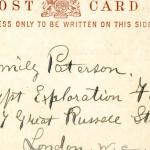 OST CARD
ESS ONLY TO BE WRITTEN ON THIS SIDE
Emily Paterson.
ypt Exploration F
7 Great Russell St
London, W.C.